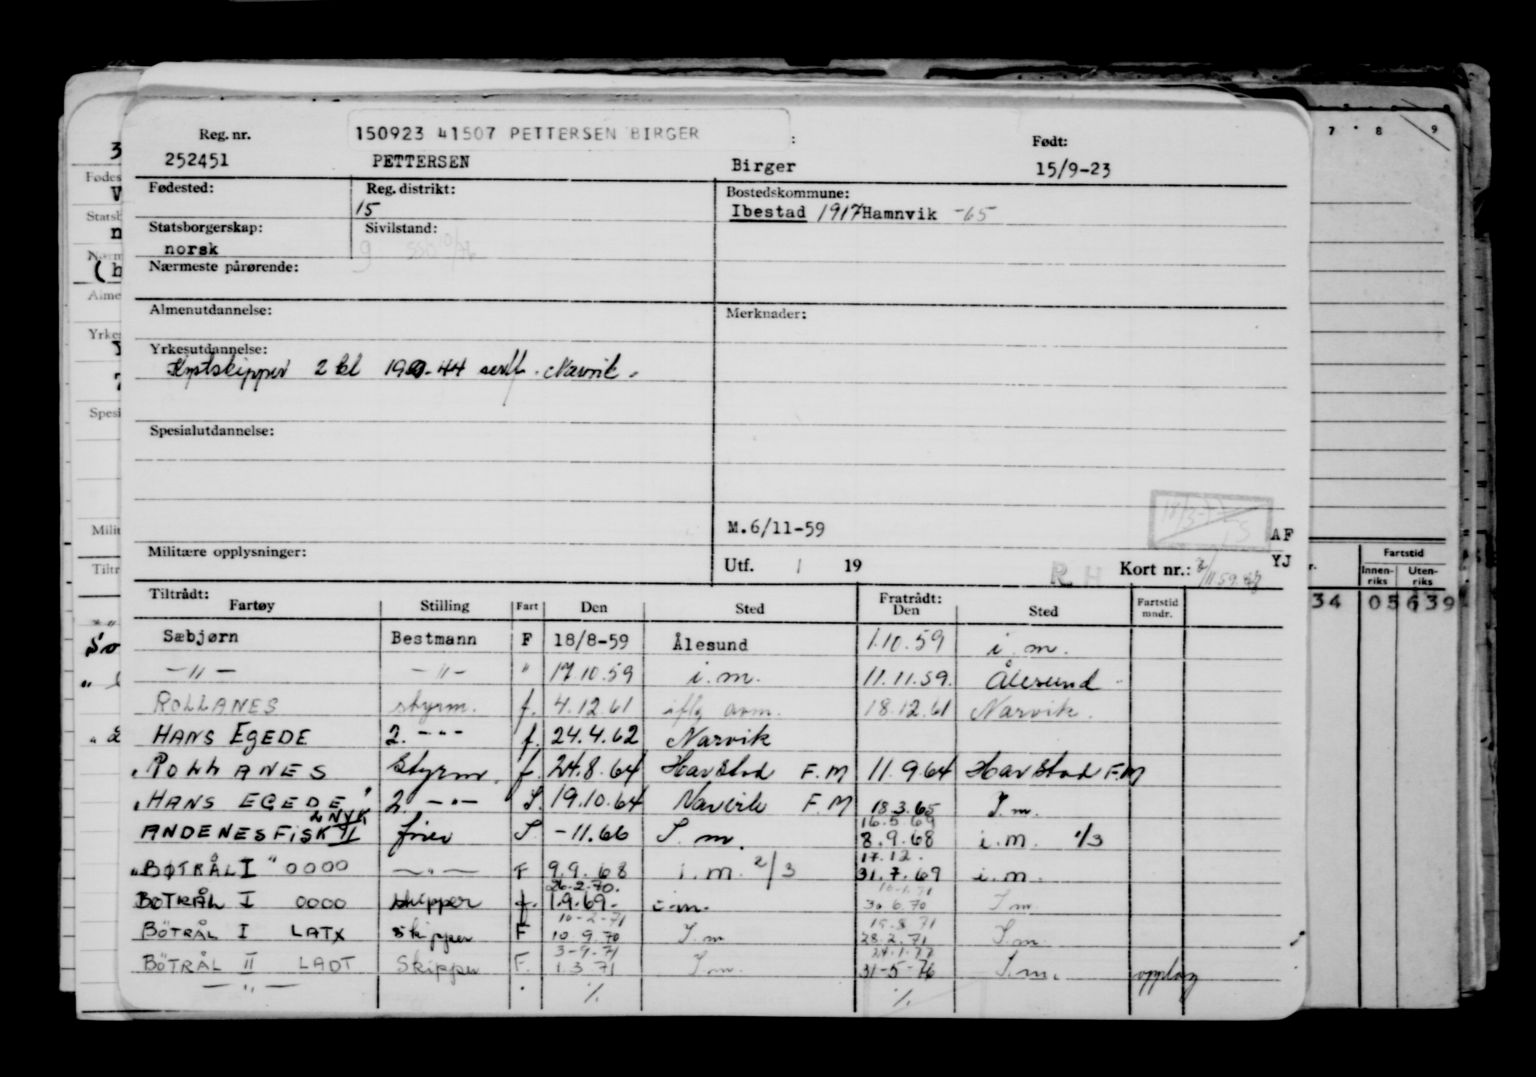 150923 41507 PETTERSEN BIRGER
Reg. nr. Født:
252451 PETTERSEN Birger 15/9-23
Fødested: Reg. distrikt: Bostedskommune:
15 Ibestad 1917 Hamnvik -65
Statsborgerskap: Sivilstand:
norsk
Nærmeste pårørende:
Almenutdannelse: Merknader:
Yrkesutdannelse:
Kystskipper 2 kl sertf. Narvik.
Spesialutdannelse:
M.6/11-59
AF
Militære opplysninger: Utf. / 19 RH Kort nr.: YJ
Tiltrådt: Fratrådt:
Fartøy Stilling Fart Den Sted Den Sted Fartstid mndr.
Sæbjørn Bestmann F 18/8-59 Ålesund 1.10.59 i.m.
-"- -"- " 17.10.59 i.m. 11.11.59. Ålesund
ROLLANES styrm. f. 4.12.61 18.12.61 Narvik.
HANS EGEDE 2. -"- f. 24.4.62 Narvik
"ROLLANES styrm. f. 24.8.64 Harstad F.M 11.9.64 Harstad F.M
"HANS EGEDE" 2. -"- S. 19.10.64 Narvik F.M 18.3.65 S.m.
LNYK 16.5.69
ANDENESFISK II S. -11.66 S.m. 8.9.68 i.m. 1/3
17.12.
"BØTRÅL I" OOOO -"- F 9.9.68 i.m. 2/3 31.7.69 i.m.
26-2-70.
BØTRÅL I OOOO skipper f. 1.9.69. i.m. 30.6.70 S.m.
10-2-71 19.8.71
BÖTRÅL I LATX skipper F 10.9.70 S.m 28.2.71 S.m.
3-9-71
BÖTRÅL II LADT Skipper F. 1.3.71 S.m. 31-5-76 S.m. opplag
-"- ./. ./.
7 8 9
Fartstid
Innenriks Utenriks
34 05 639